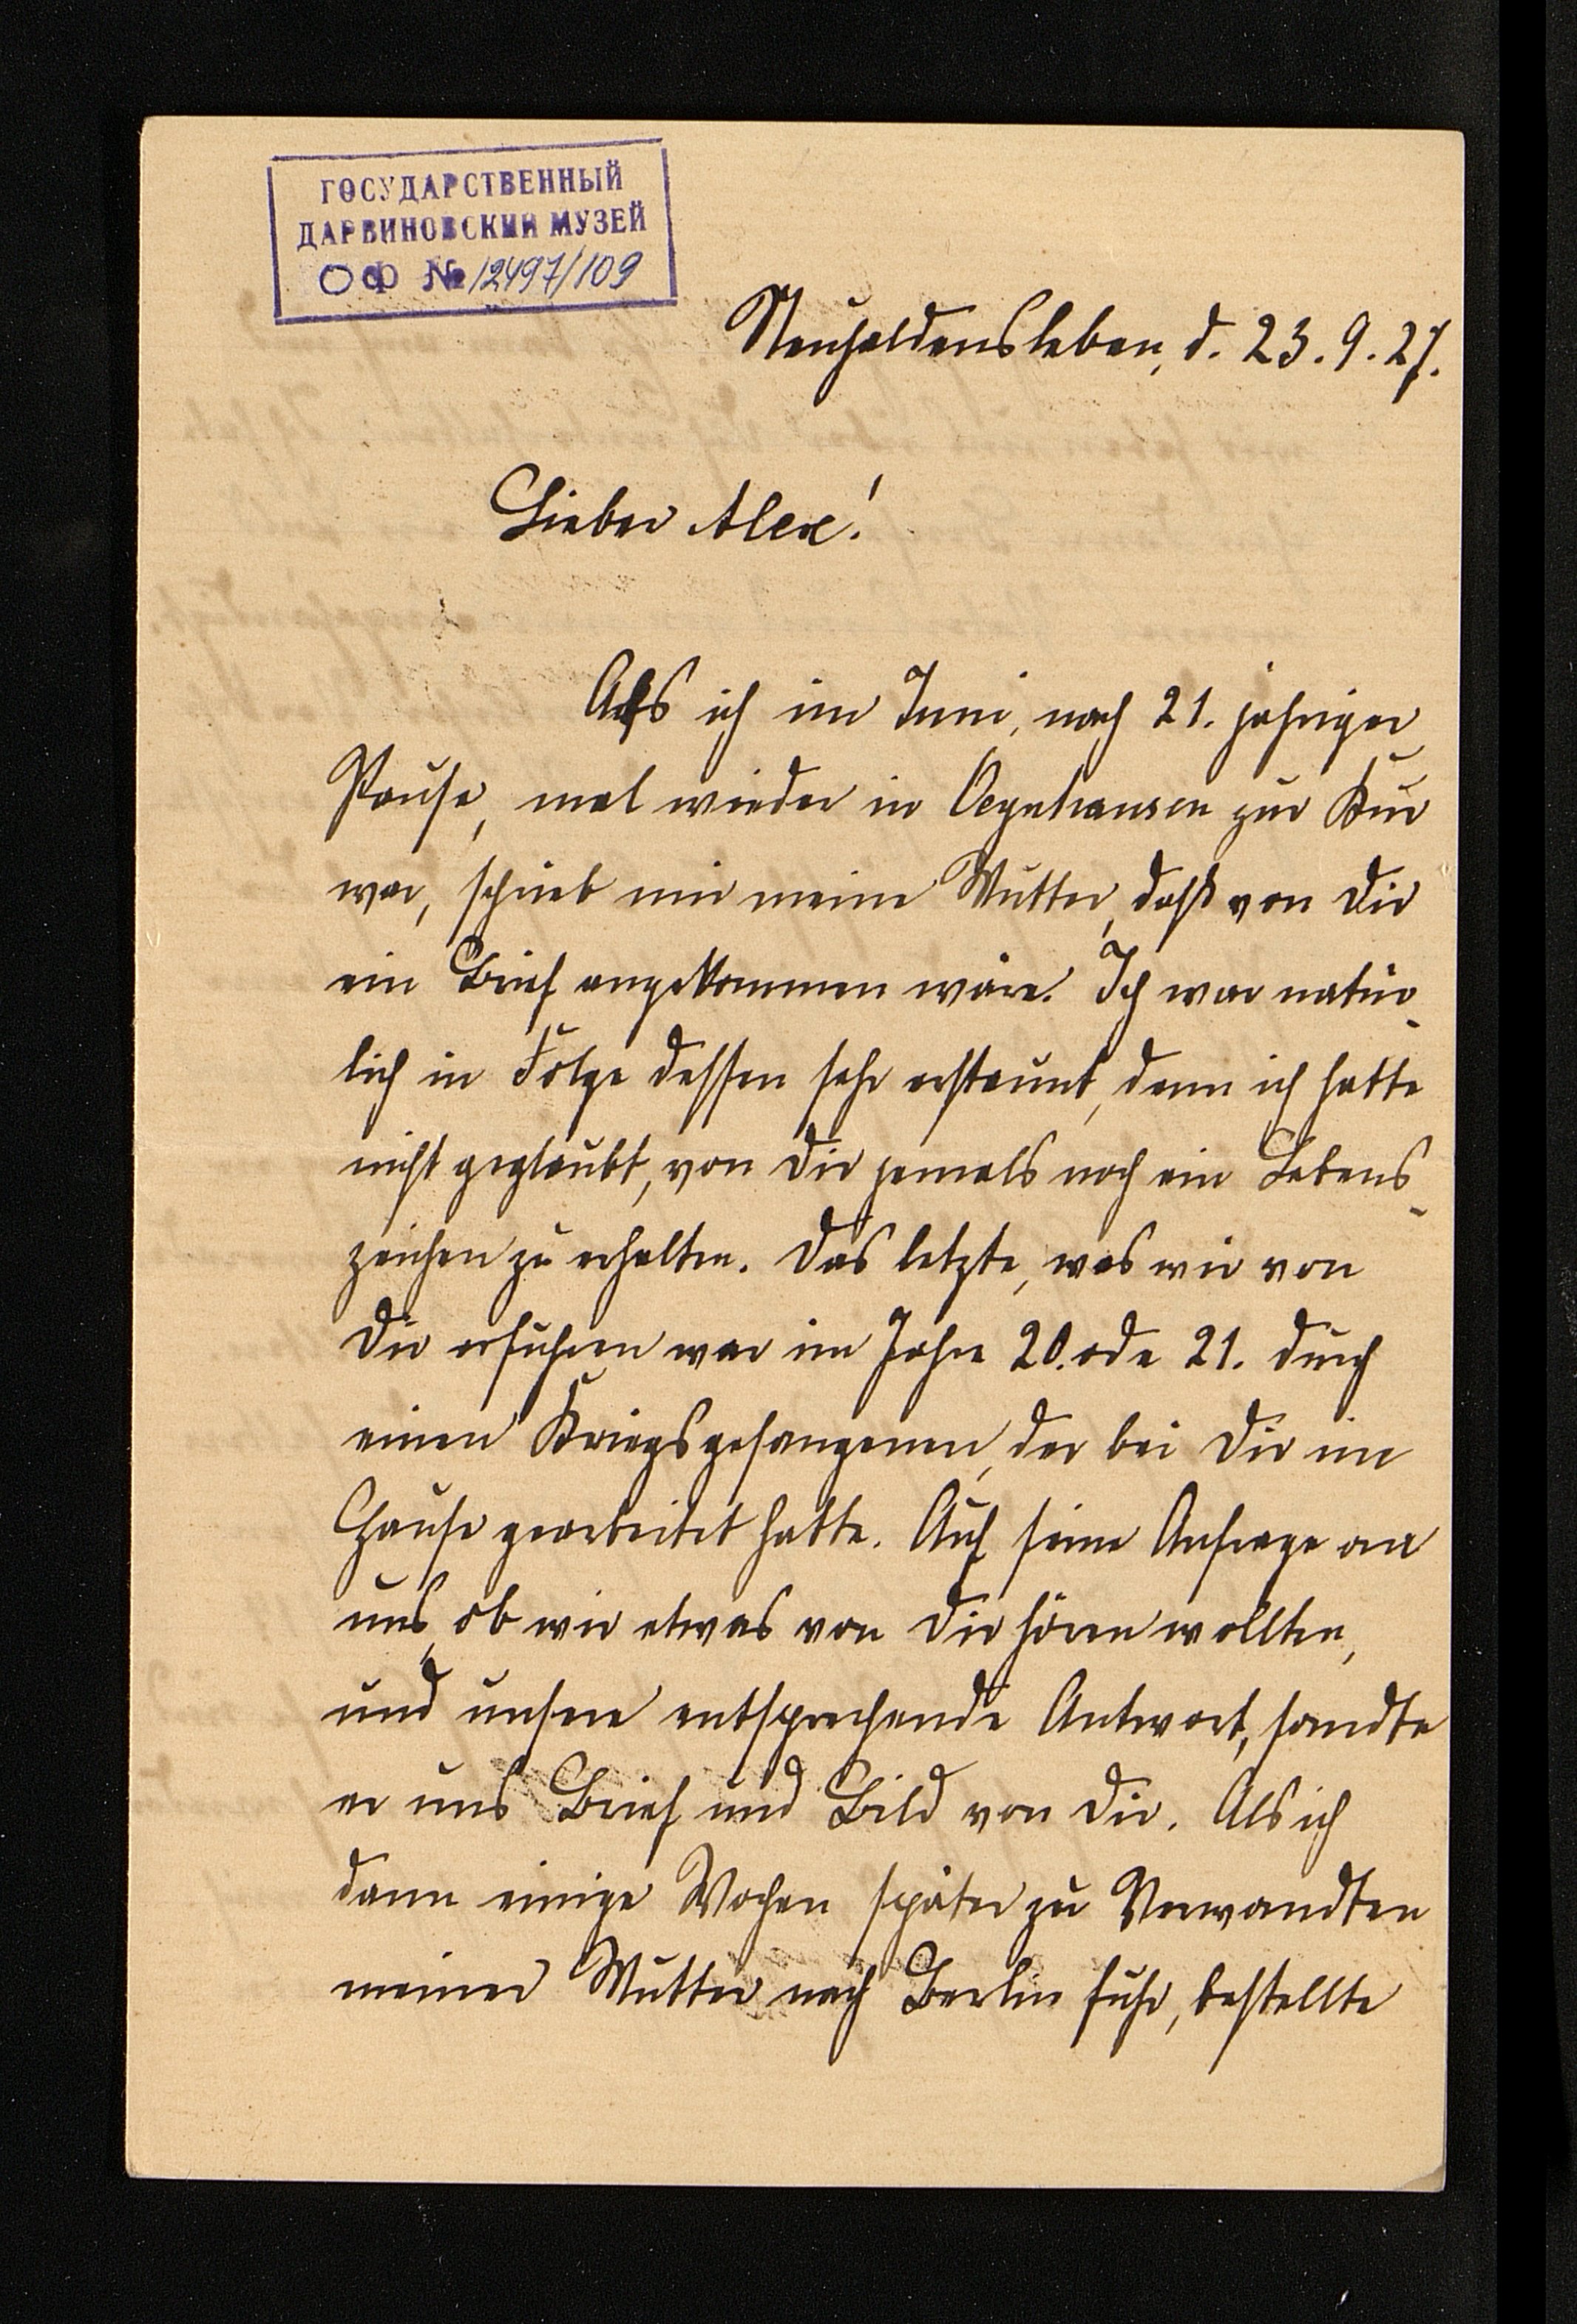 ГОСУДАРСТВЕННЫЙ
ДАРВИНОВСКИЙ МУЗЕЙ
ОФ № 12497/109
Neuhaldensleben, d. 23.9.27.
Lieber Alex!
Als ich im Juni, nach 21. jähriger
Pause, mal wieder in Oeynhausen zur Kur
war, schrieb mir meine Mutter, daß von Dir
ein Brief angekommen wäre. Ich war natür-
lich in Folge dessen sehr erstaunt, denn ich hatte
nicht geglaubt, von Dir jemals noch ein Lebens-
zeichen zu erhalten. Das letzte, was wir von
Dir erfuhren war im Jahre 20. oder 21. durch
einen Kriegsgefangenen, der bei Dir im
Hause gearbeitet hatte. Auf seine Anfrage an
uns, ob wir etwas von Dir hören wollten,
und unsere entsprechende Antwort, sandte
er uns Brief und Bild von Dir. Als ich
dann einige Wochen später zu Verwandten
meiner Mutter nach Berlin fuhr, bestellte